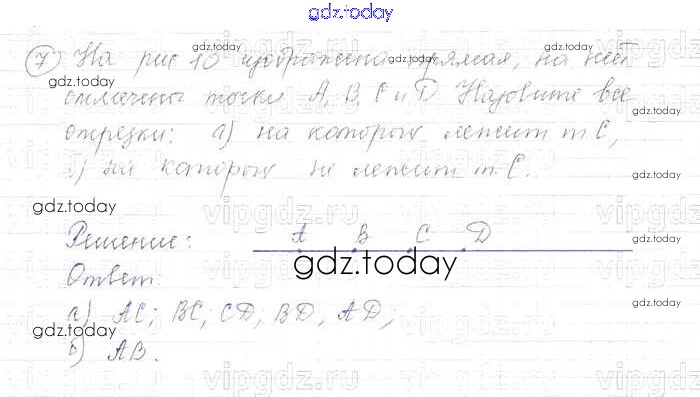 gdz.today
7) На рис 10 изображена прямая, на ней
отмечены точки A, B, C и D. Назовите все
отрезки: а) на которых лежит т. C,
б) на которых не лежит т. C.
Решение:
A B C D
Ответ:
а) AC; BC; CD; BD, AD;
б) AB.
gdz.today
gdz.today
gdz.today
gdz.today
gdz.today
gdz.today
gdz.today
gdz.today
vipgdz.ru
vipgdz.ru
vipgdz.ru
vipgdz.ru